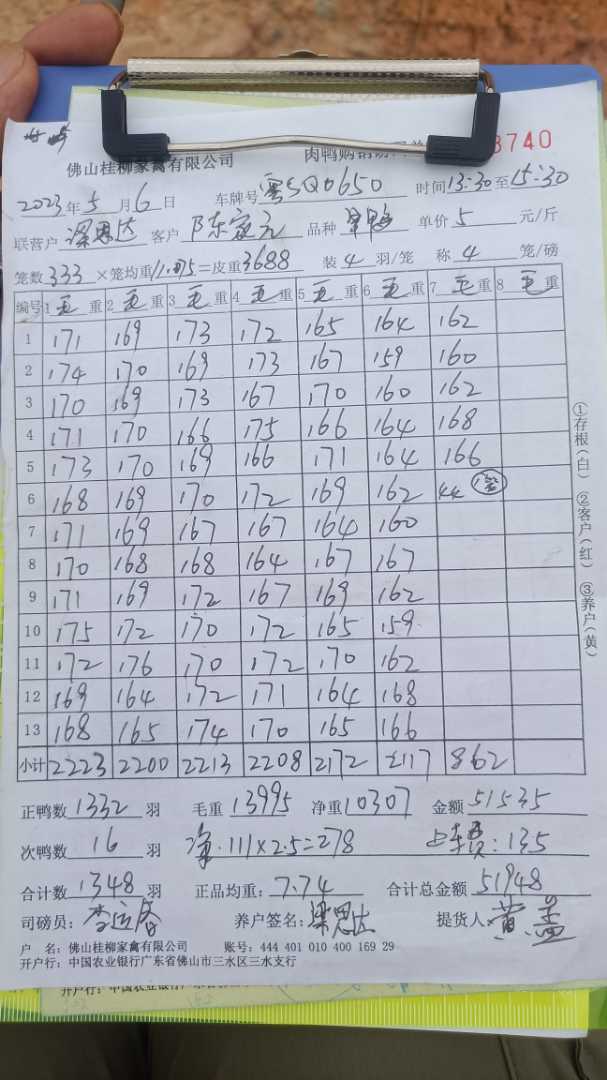 佛山桂柳家禽有限公司 肉鸭购销 3740
2023年5月6日 车牌号粤SQ0650 时间13:30至15:30
联营户梁恩达 客户陈家元 品种 单价5元/斤
笼数333×笼均重11.075=皮重3688 装4羽/笼 称4笼/磅
编号 1毛重 2毛重 3毛重 4毛重 5毛重 6毛重 7毛重 8毛重
1 171 169 173 172 165 164 162
2 174 170 169 173 167 159 160
3 170 169 173 167 170 160 162
4 171 170 166 175 166 164 168
5 173 170 169 166 171 164 166
6 168 169 170 172 169 162 44
7 171 169 167 167 164 160
8 170 168 168 164 167 167
9 171 169 172 167 169 162
10 175 172 170 172 165 159
11 172 176 170 172 170 162
12 169 164 172 171 164 168
13 168 165 174 170 165 166
小计 2223 2200 2213 2208 2172 2117 862
①存根(白) ②客户(红) ③养户(黄)
正鸭数1332羽 毛重13995 净重10307 金额51535
次鸭数16羽 净.111×2.5=278 上车费:135
合计数1348羽 正品均重:7.74 合计总金额51948
司磅员: 养户签名:梁恩达 提货人:黄孟
户 名:佛山桂柳家禽有限公司 账号:444 401 010 400 169 29
开户行:中国农业银行广东省佛山市三水区三水支行
开户行:中国农业银行